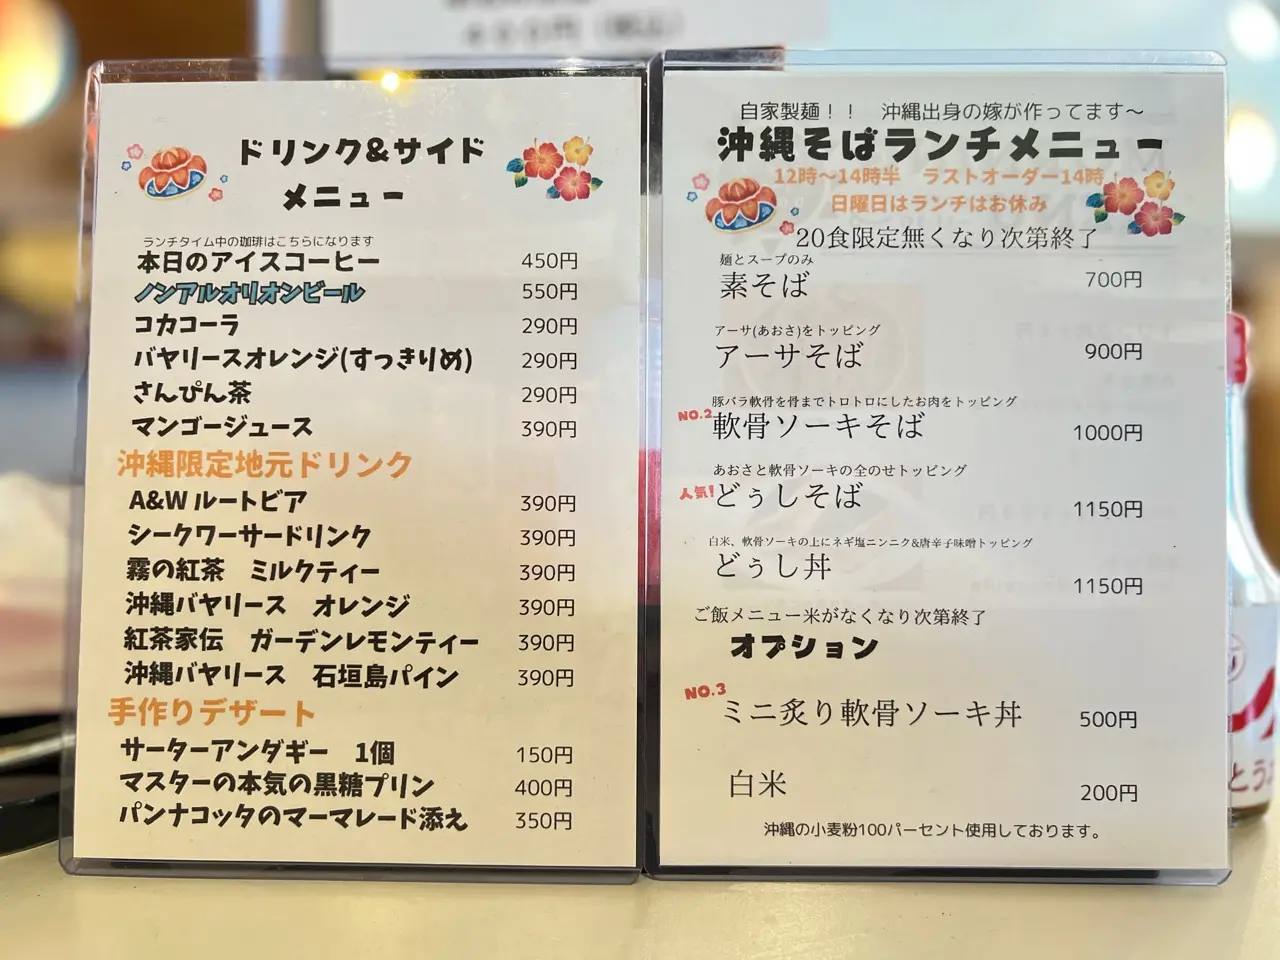 ドリンク&サイド
メニュー
ランチタイム中の珈琲はこちらになります
本日のアイスコーヒー 450円
ノンアルオリオンビール 550円
コカコーラ 290円
バヤリースオレンジ(すっきりめ) 290円
さんぴん茶 290円
マンゴージュース 390円
沖縄限定地元ドリンク
A&W ルートビア 390円
シークワーサードリンク 390円
霧の紅茶 ミルクティー 390円
沖縄バヤリース オレンジ 390円
紅茶家伝 ガーデンレモンティー 390円
沖縄バヤリース 石垣島パイン 390円
手作りデザート
サーターアンダギー 1個 150円
マスターの本気の黒糖プリン 400円
パンナコッタのマーマレード添え 350円
自家製麺！！ 沖縄出身の嫁が作ってます〜
沖縄そばランチメニュー
12時〜14時半 ラストオーダー14時
日曜日はランチはお休み
20食限定無くなり次第終了
麺とスープのみ
素そば 700円
アーサ(あおさ)をトッピング
アーサそば 900円
豚バラ軟骨を骨までトロトロにしたお肉をトッピング
NO.2 軟骨ソーキそば 1000円
あおさと軟骨ソーキの全のせトッピング
人気! どぅしそば 1150円
白米、軟骨ソーキの上にネギ塩ニンニク&唐辛子味噌トッピング
どぅし丼 1150円
ご飯メニュー米がなくなり次第終了
オプション
NO.3
ミニ炙り軟骨ソーキ丼 500円
白米 200円
沖縄の小麦粉100パーセント使用しております。